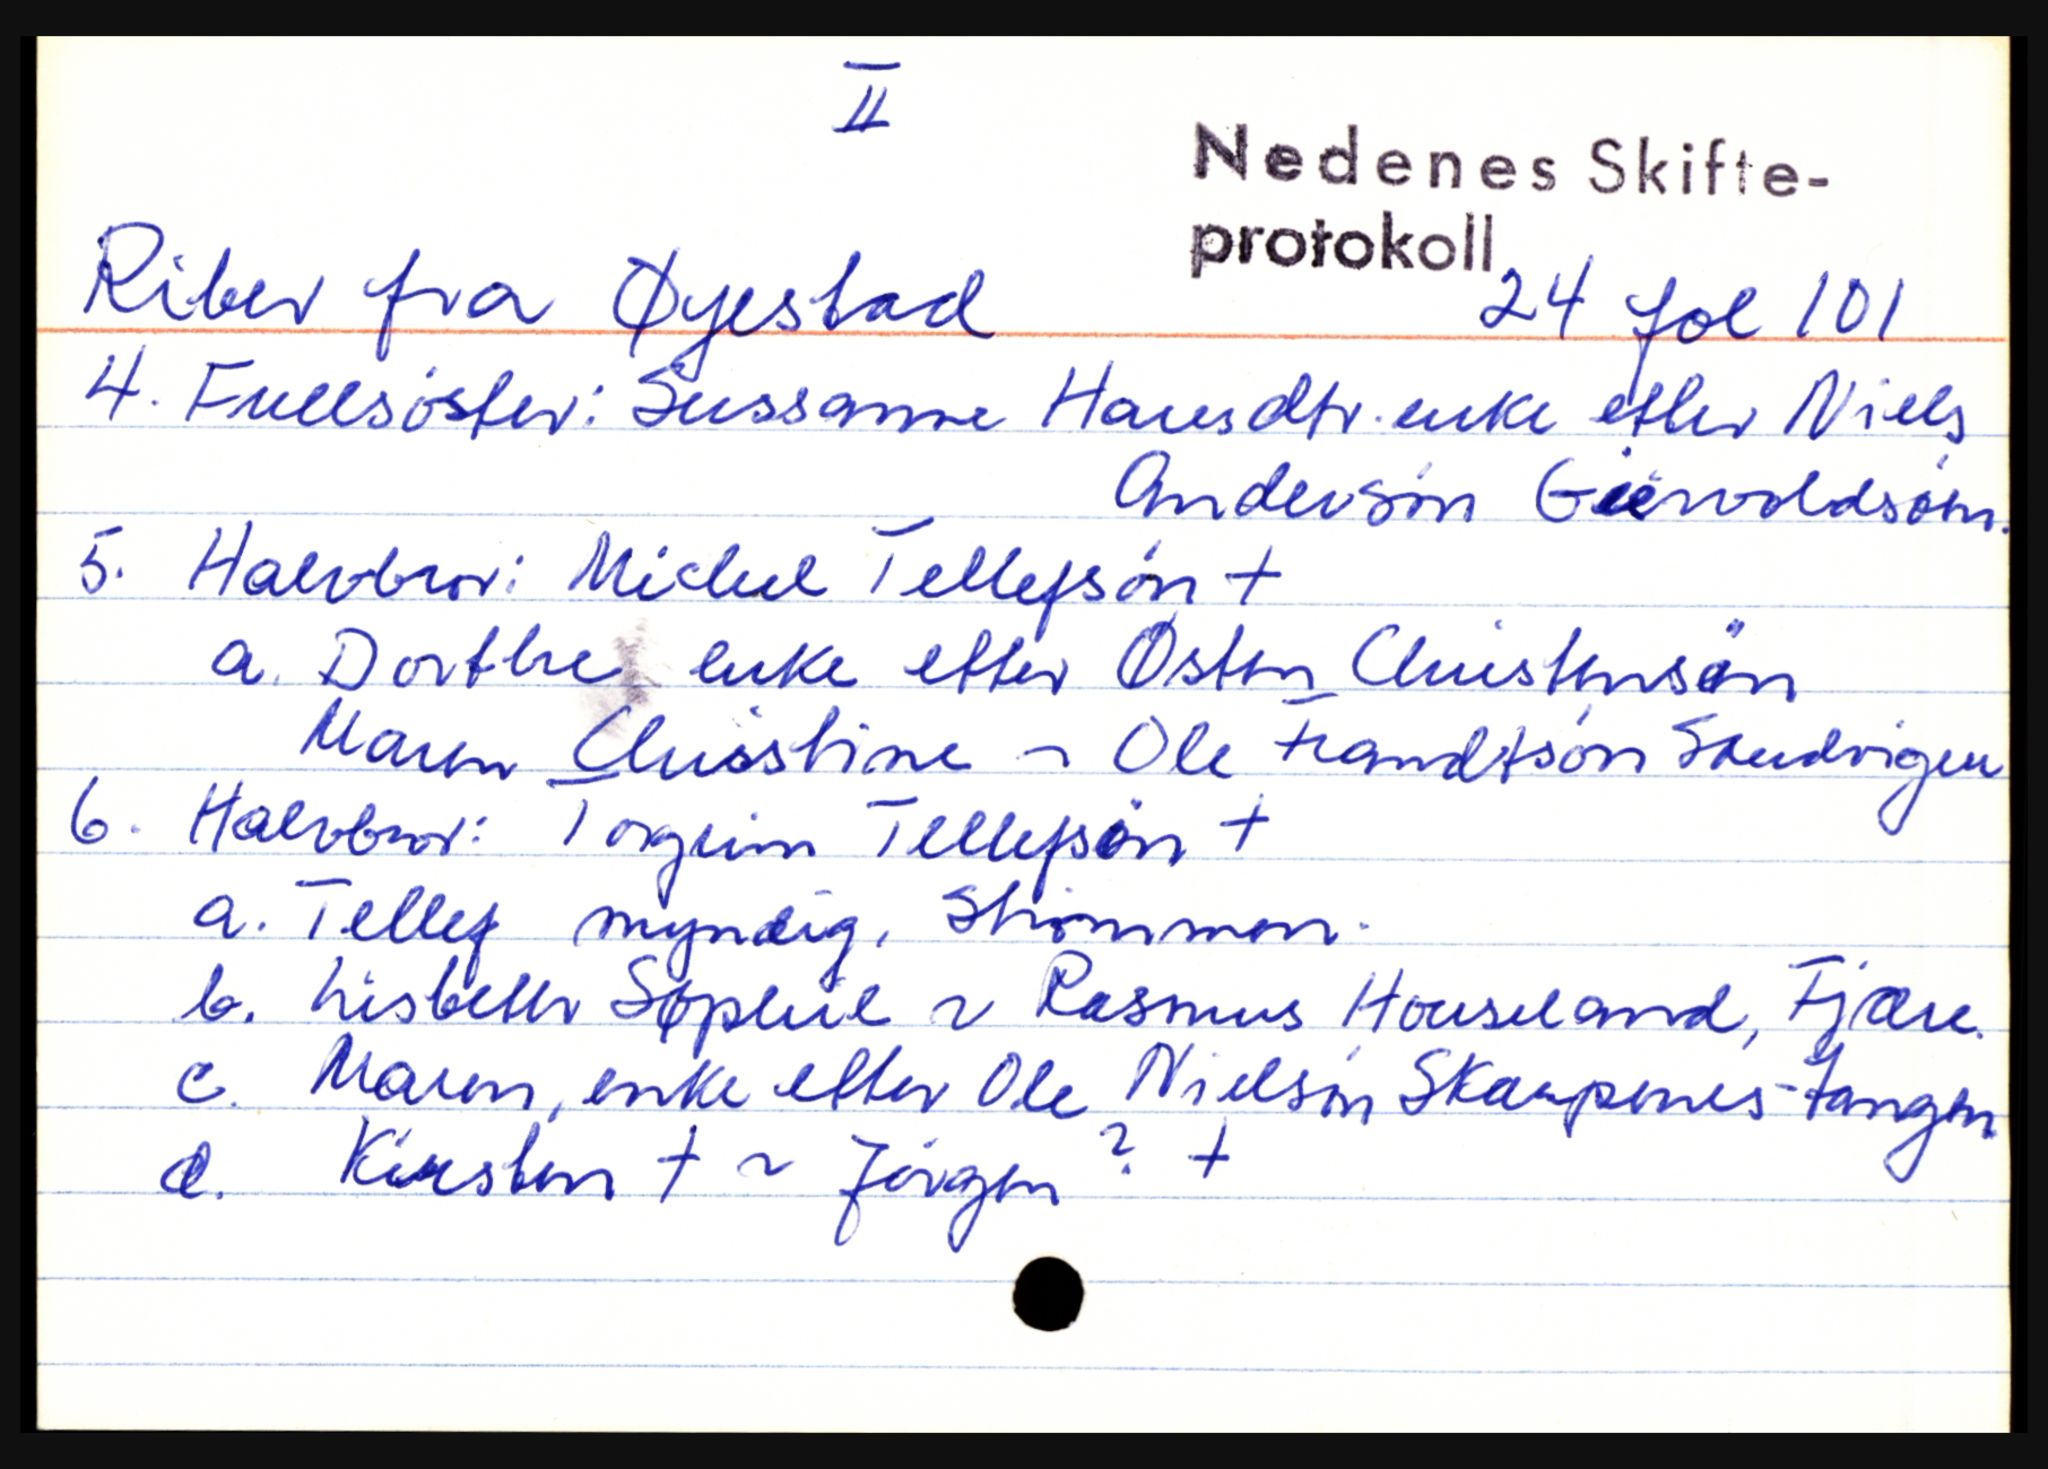 II
Nedenes Skifte-
protokoll
Riber fra Øyestad 24 fol 101
4. Fullsöster: Sussanne Hansdtr. enke etter Niels
Andersön Giervoldsön.
5. Halvbror: Michel Tellefsön +
a. Dorthe enke etter Østen Christensön
Maren Christine ~ Ole Trandtsön Skudvigen
6. Halvbror: Torgrim Tellefsön +
a. Tellef myndig, Strömmen.
b. Lisbeth Sophie ~ Rasmus Houseland, Fjære.
c. Maren, enke etter Ole Nielsön Skarpenes-tangen
d. Kirsten + ~ Jörgen ? +